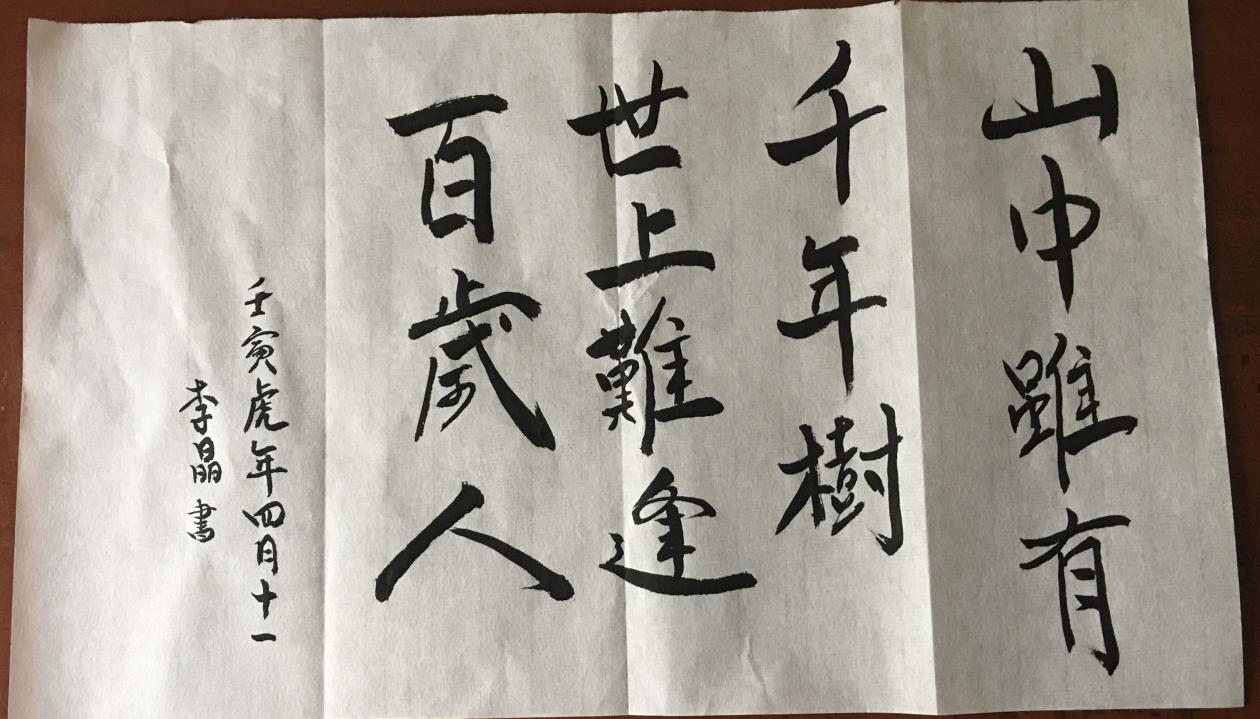 山中雖有
千年樹
世上難逢
百歲人
壬寅虎年四月十一
李晶書